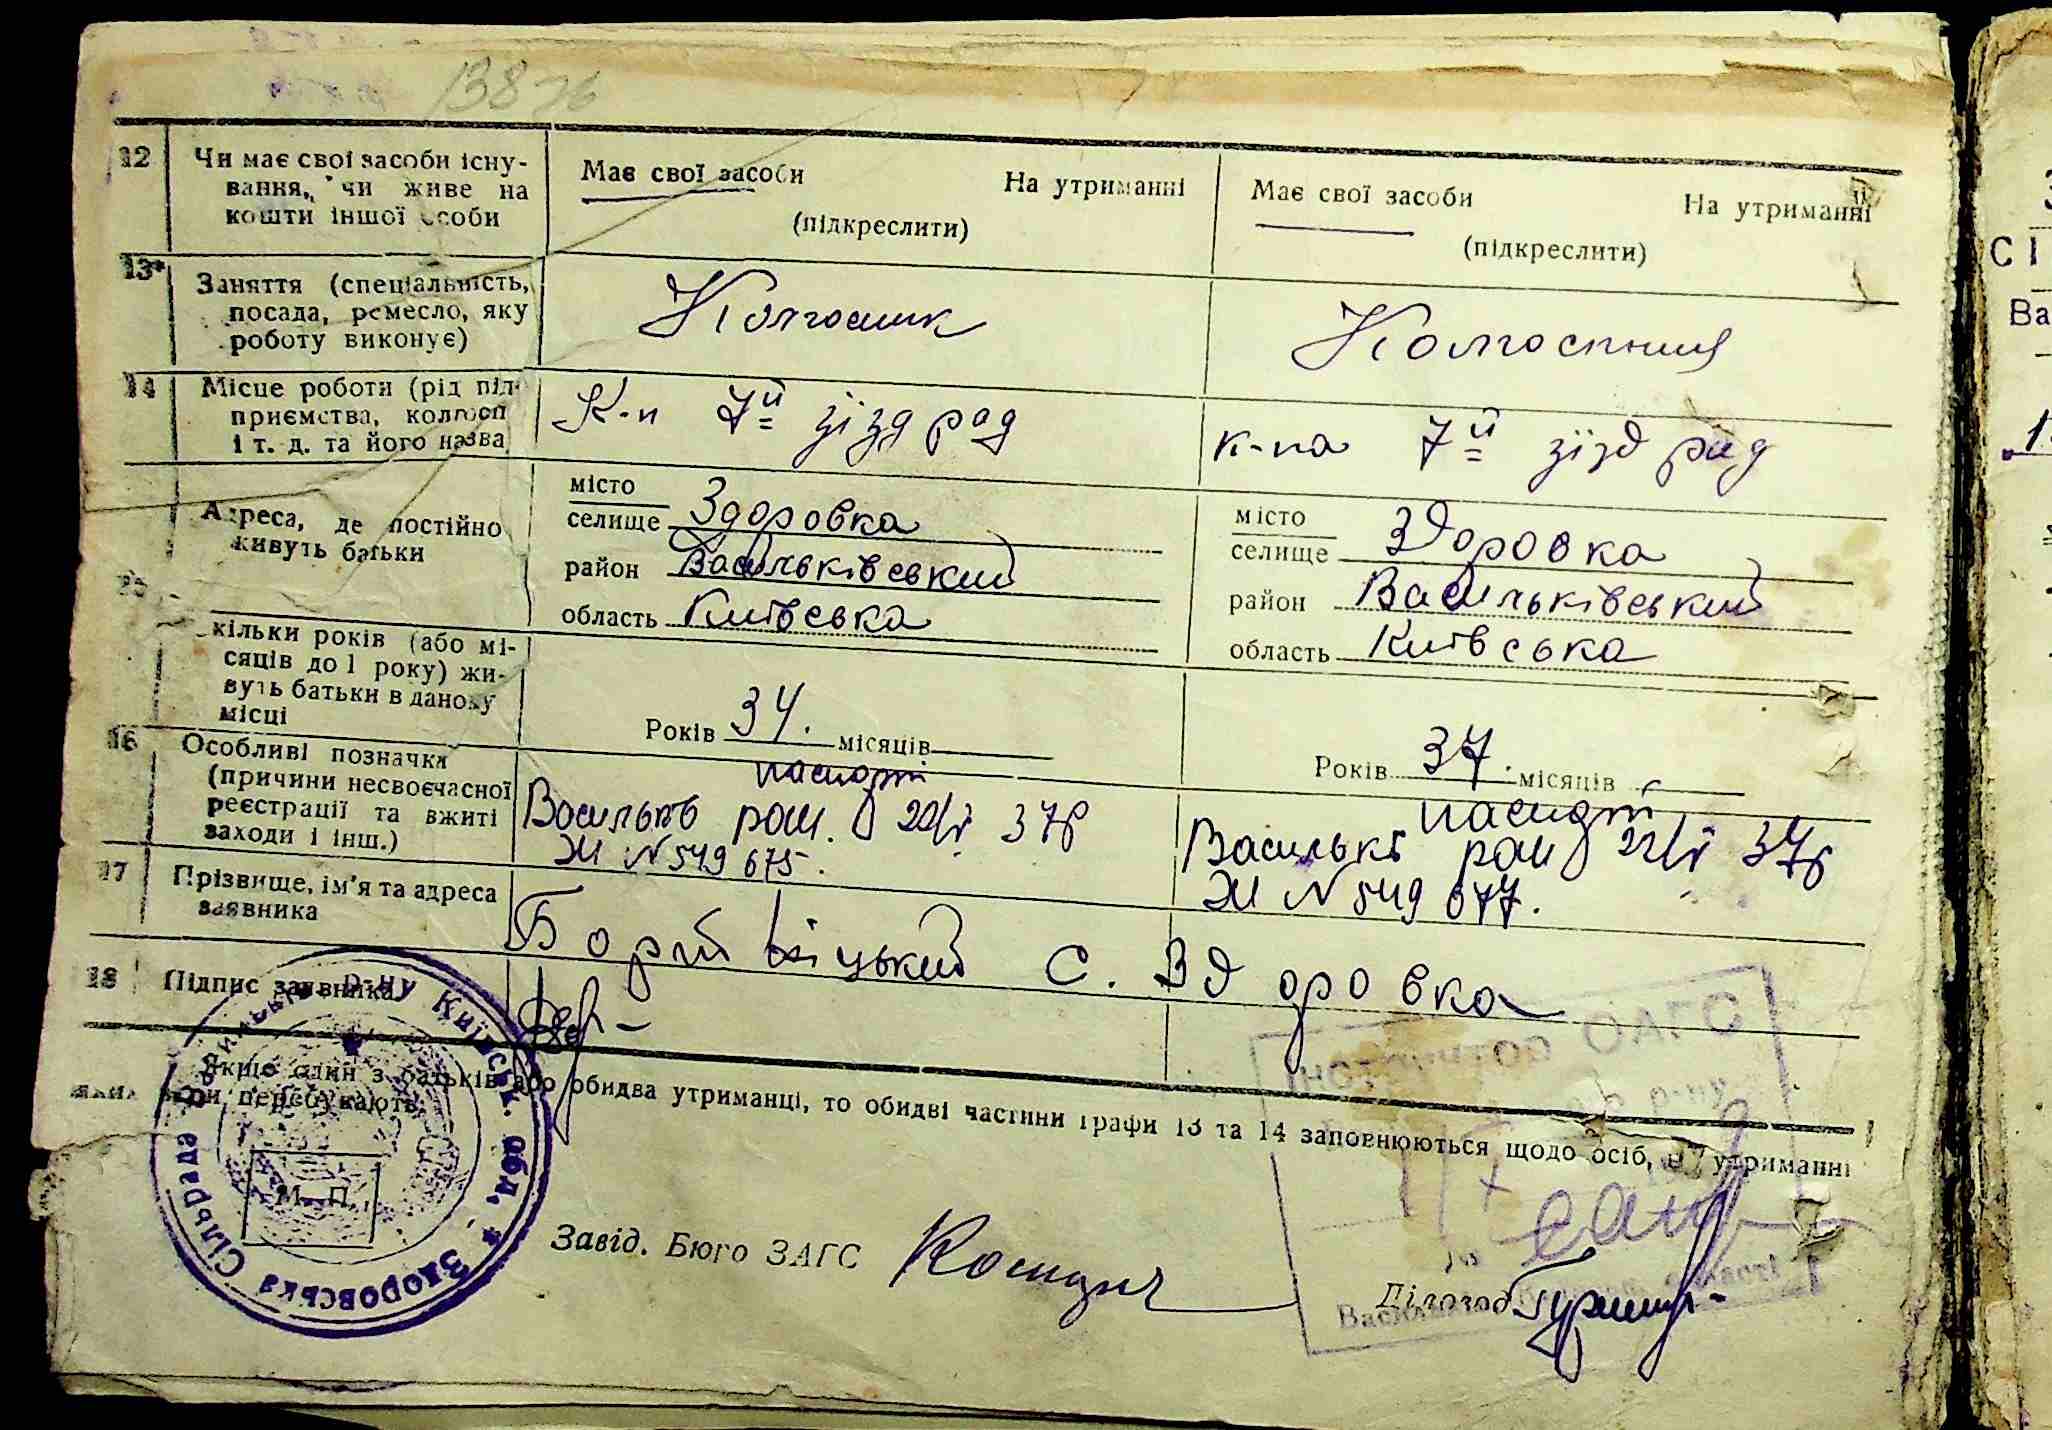 13876
12 Чи має свої засоби існу-
вання, чи живе на
кошти іншої особи
Має свої засоби На утриманні
(підкреслити)
Має свої засоби На утриманні
(підкреслити)
13* Заняття (спеціальність,
посада, ремесло, яку
роботу виконує)
Колгоспник
Колгоспниця
14 Місце роботи (рід під-
приємства, колгосп
і т. д. та його назва
К-п 7й зїзд рад
к-па 7й зїзд рад
Адреса, де постійно
живуть батьки
місто
селище Здоровка
район Васильківський
область Київська
місто
селище Здоровка
район Васильківський
область Київська
15
кільки років (або мі-
сяців до 1 року) жи-
вуть батьки в даному
місці
Років 34. місяців
Років 37. місяців
16 Особливі позначки
(причини несвоєчасної
реєстрації та вжиті
заходи і інш.)
паспорт
Васильків 22/V 37р
ЖІ № 549 675.
паспорт
Васильків 22/V 37р
ЖІ № 549 677.
17 Прізвище, ім'я та адреса
заявника
с. Здоровка
18 Підпис заявника
Якщо один з батьків або обидва утриманці, то обидві частини графи 13 та 14 заповнюються щодо осіб, на утриманні
яких вони перебувають
М. П.
Здоровська Сільрада Васильків. р-ну Київськ. обл.
ЗАГС
р-ну
Завід. Бюро ЗАГС
Діловод
СІ
Ва